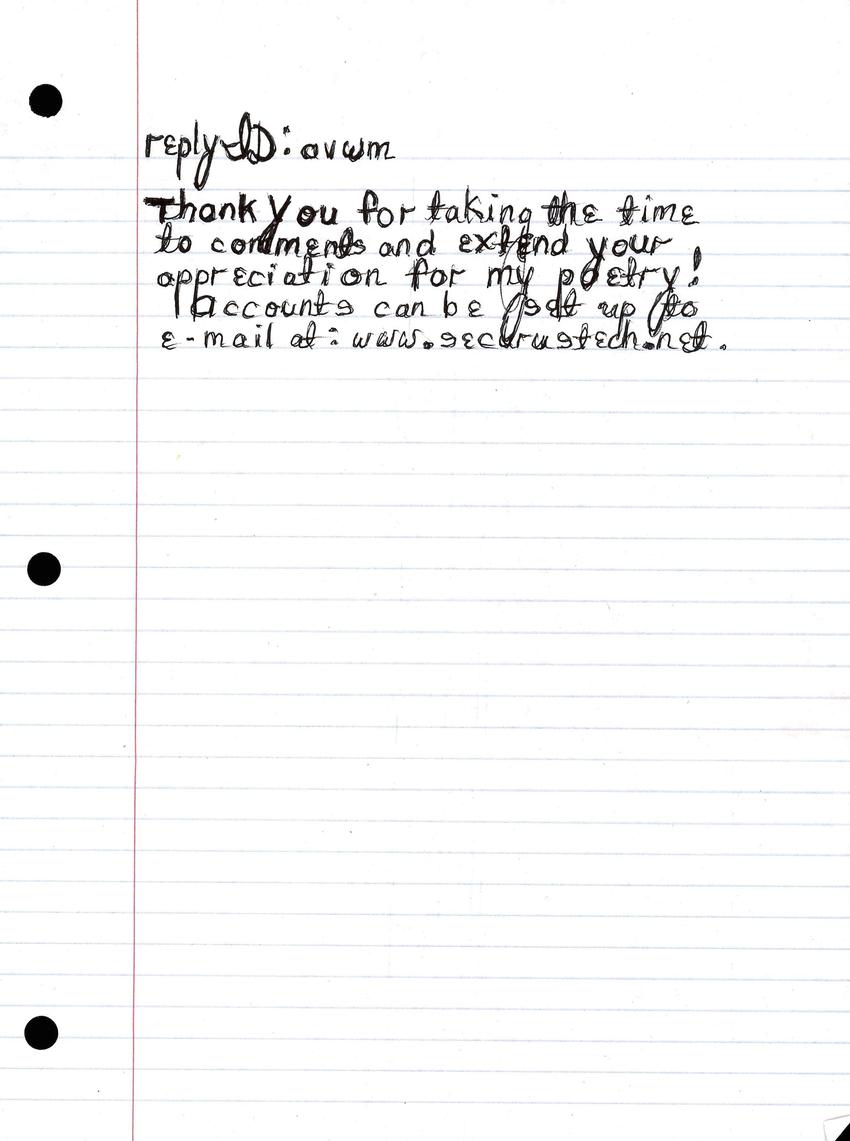 reply-ID: avwm
Thank you for taking the time
to comments and extend your
appreciation for my poetry!
accounts can be set up to
e-mail at: www.securustech.net.